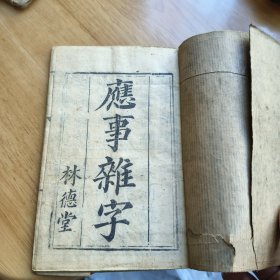 應事雜字
林德堂